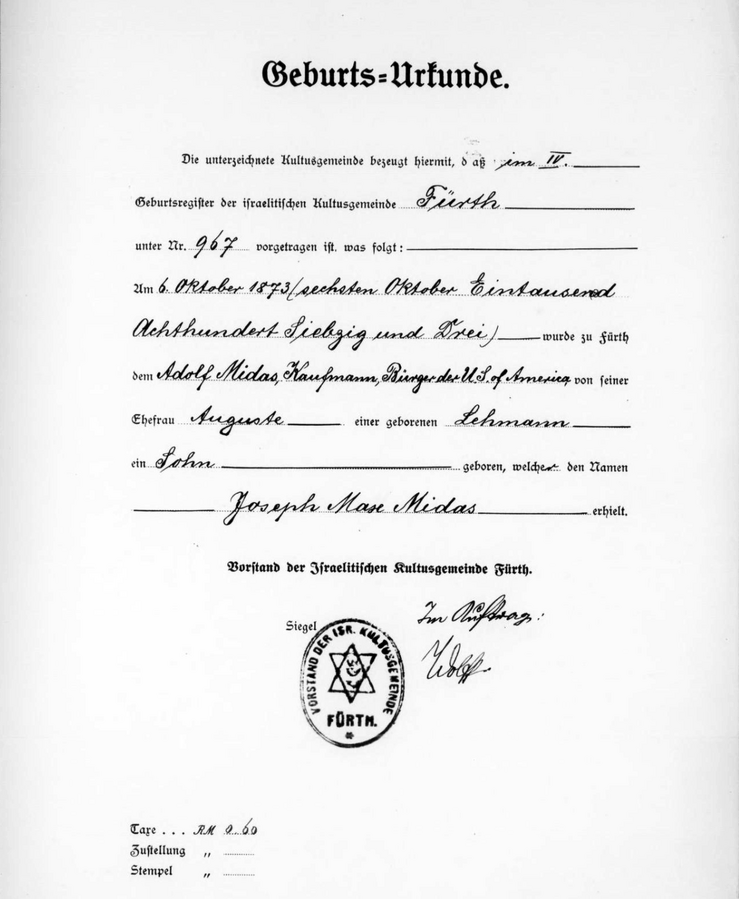 Geburts=Urkunde.
Die unterzeichnete Kultusgemeinde bezeugt hiermit, daß im IV.
Geburtsregister der israelitischen Kultusgemeinde Fürth
unter Nr. 967 vorgetragen ist, was folgt:
Am 6. Oktober 1873 (sechsten Oktober Eintausend
Achthundert Siebzig und Drei) wurde zu Fürth
dem Adolf Midas, Kaufmann, Bürger der U.S. of America von seiner
Ehefrau Auguste einer geborenen Lehmann
ein Sohn geboren, welcher den Namen
Joseph Max Midas erhielt.
Vorstand der Israelitischen Kultusgemeinde Fürth.
Im Auftrag:
Siegel
VORSTAND DER ISR. KULTUSGEMEINDE
FÜRTH.
Wolff
Taxe . . . RM 0.60
Zustellung „
Stempel „